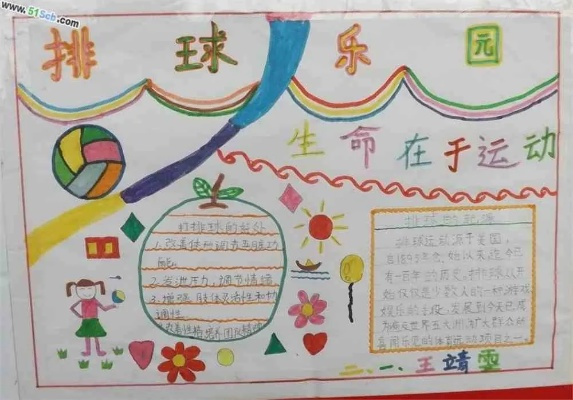 www.51Scb.com
排球乐园
生命在于运动
打排球的好处
1.改善体和调者五脏功
能。
2.发泄压力,调节情绪
3.增强肢体灵活性和协
调性。
排球的起源
排球运动源于美国,
自1895年它始以来迄今已
有一百年的历史,排球从开
始仅仅是少数人的一种游戏
娱乐的手段,发展到今天已成
为遍及世界五大洲,广大群众所
喜闻乐见的体育运动项目之一。
二、一、王靖雯